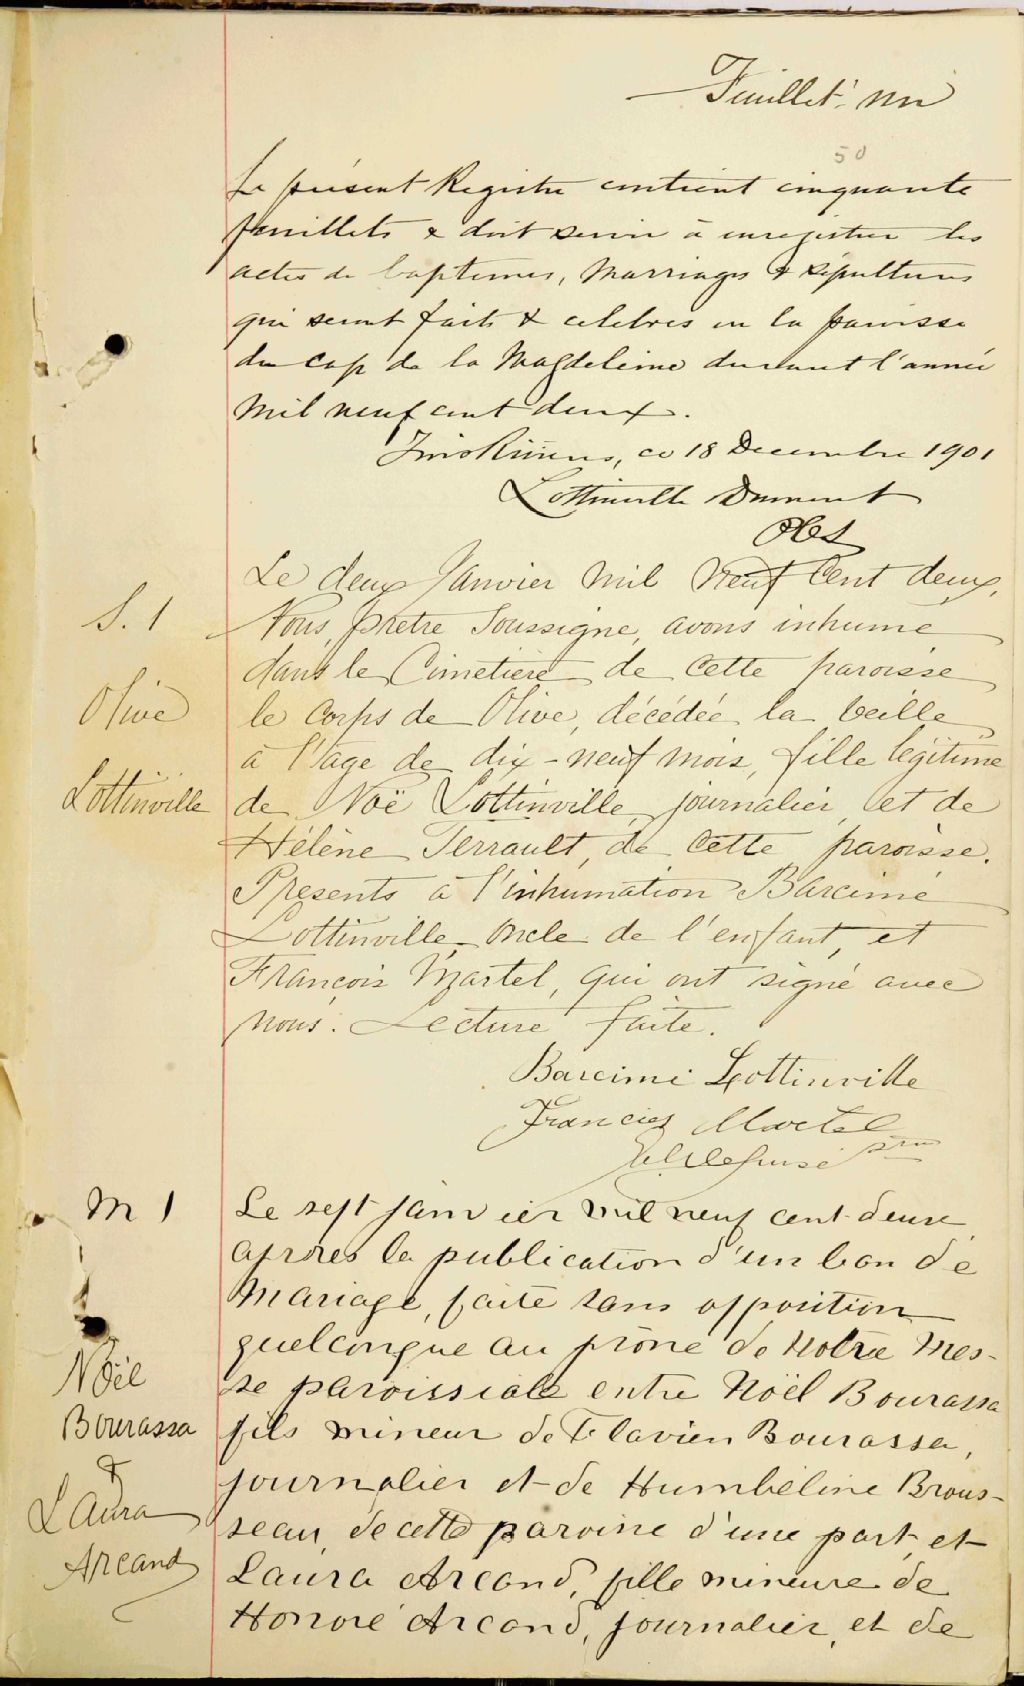 Feuillet un
50
Le présent Registre contient cinquante
feuillets & doit servir à enregistrer les
actes de baptemes, Marriages & sépultures
qui seront faits & celebres en la paroisse
du Cap de la Magdeleine durant l'année
Mil neuf cent deux.
Trois Rivieres, ce 18 Decembre 1901
Lottinville Dumont
Le deux Janvier mil Neuf Cent deux,
S. 1
Nous, prêtre Soussigné, avons inhumé
dans le Cimetière de cette paroisse
Olive
le corps de Olive, décédée la veille
à l'age de dix-neuf mois, fille légitime
Lottinville
de Noë Lottinville, journalier, et de
Hélène Terrault, de cette paroisse.
Presents à l'inhumation Barcimé
Lottinville, oncle de l'enfant, et
François Martel, qui ont signé avec
nous. Lecture faite.
Barcimi Lottinville
Francies Martel
ptre
M 1
Le sept janvier mil neuf cent deux
après la publication d'un ban de
Mariage, faite sans opposition
quelconque au prône de Notre Mes-
Noël
se paroissiale entre Noël Bourassa
Bourassa
fils mineur de Flavien Bourassa,
&
journalier et de Humbéline Brous-
Laura
seau, de cette paroisse d'une part, et
Arcand
Laura Arcand, fille mineure de
Honoré Arcand, journalier, et de